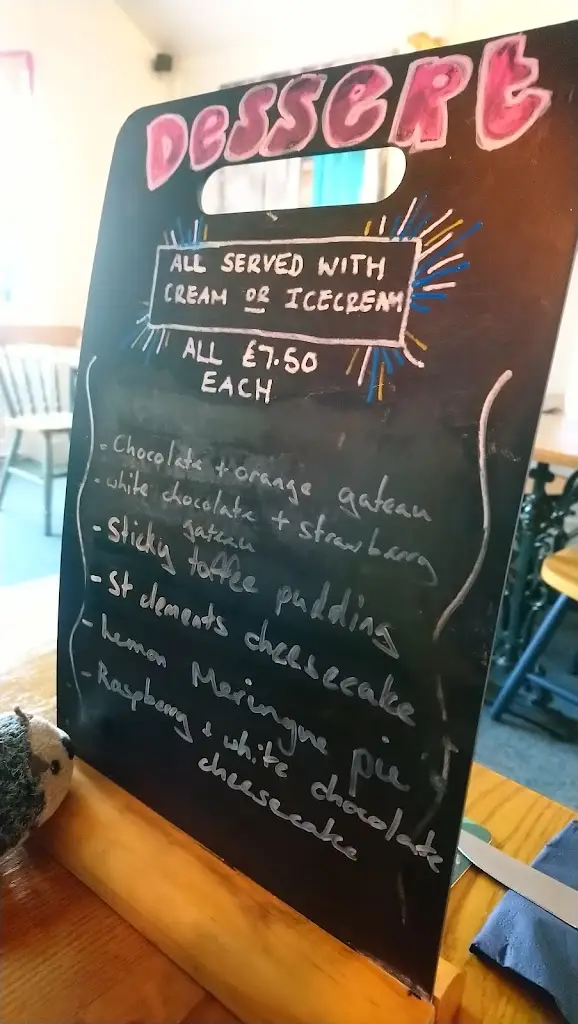 Dessert
ALL SERVED WITH
CREAM OR ICECREAM
ALL £7.50
EACH
- Chocolate + orange gateau
- white chocolate + strawberry
gateau
- Sticky toffee pudding
- St clements cheesecake
- Lemon Meringue pie
- Raspberry + white chocolate
cheesecake